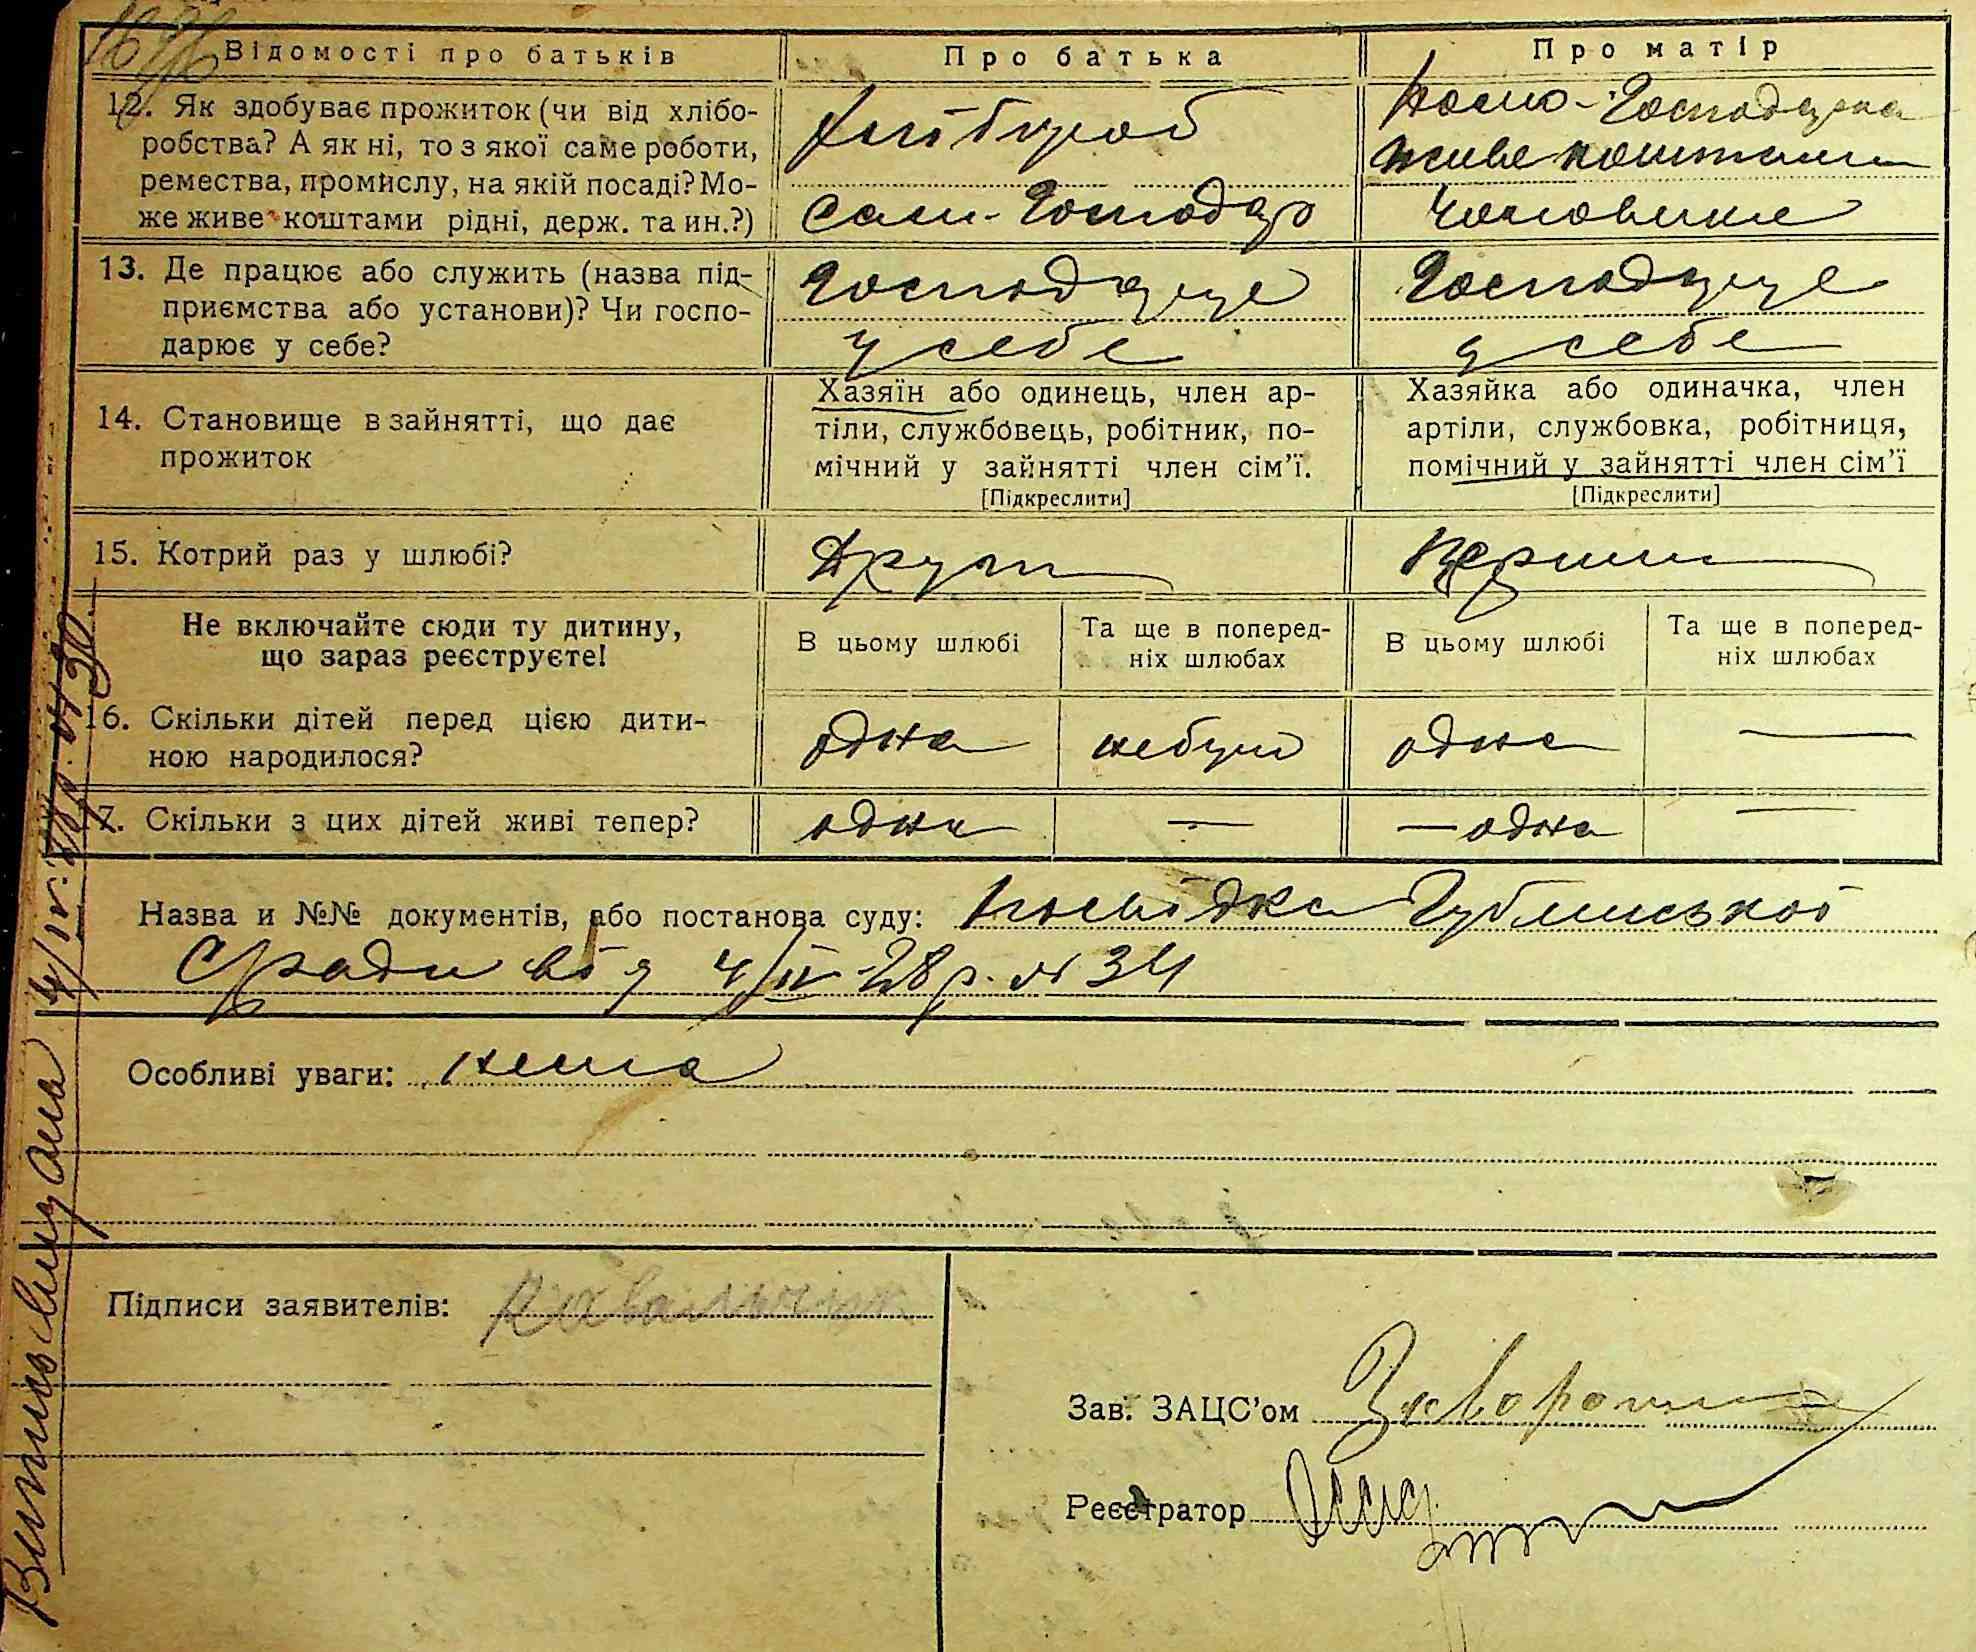 Відомості про батьків
Про батька
Про матір
12. Як здобуває прожиток (чи від хлібо-
робства? А як ні, то з якої саме роботи,
ремества, промислу, на якій посаді? Мо-
же живе коштами рідні, держ. та ин.?)
Хлібороб
Сам-Господар
Господарка
живе коштами
чоловіка
13. Де працює або служить (назва під-
приємства або установи)? Чи госпо-
дарює у себе?
Господарує
у себе
Господарує
у себе
14. Становище в зайнятті, що дає
прожиток
Хазяїн або одинець, член ар-
тіли, службовець, робітник, по-
мічний у зайнятті член сім’ї.
[Підкреслити]
Хазяйка або одиначка, член
артіли, службовка, робітниця,
помічний у зайнятті член сім’ї
[Підкреслити]
15. Котрий раз у шлюбі?
Други
Перший
Не включайте сюди ту дитину,
що зараз реєструєте!
В цьому шлюбі
Та ще в поперед-
ніх шлюбах
В цьому шлюбі
Та ще в поперед-
ніх шлюбах
16. Скільки дітей перед цією дити-
ною народилося?
одна
небуло
одна
—
17. Скільки з цих дітей живі тепер?
одна
—
— одна
—
Назва и №№ документів, або постанова суду: Посвідка
Сради від 4/IV-28р. № 34
Особливі уваги: нема
Підписи заявителів: Ковальчук
Зав. ЗАЦС’ом
Реєстратор
4/IV-28р. № 30